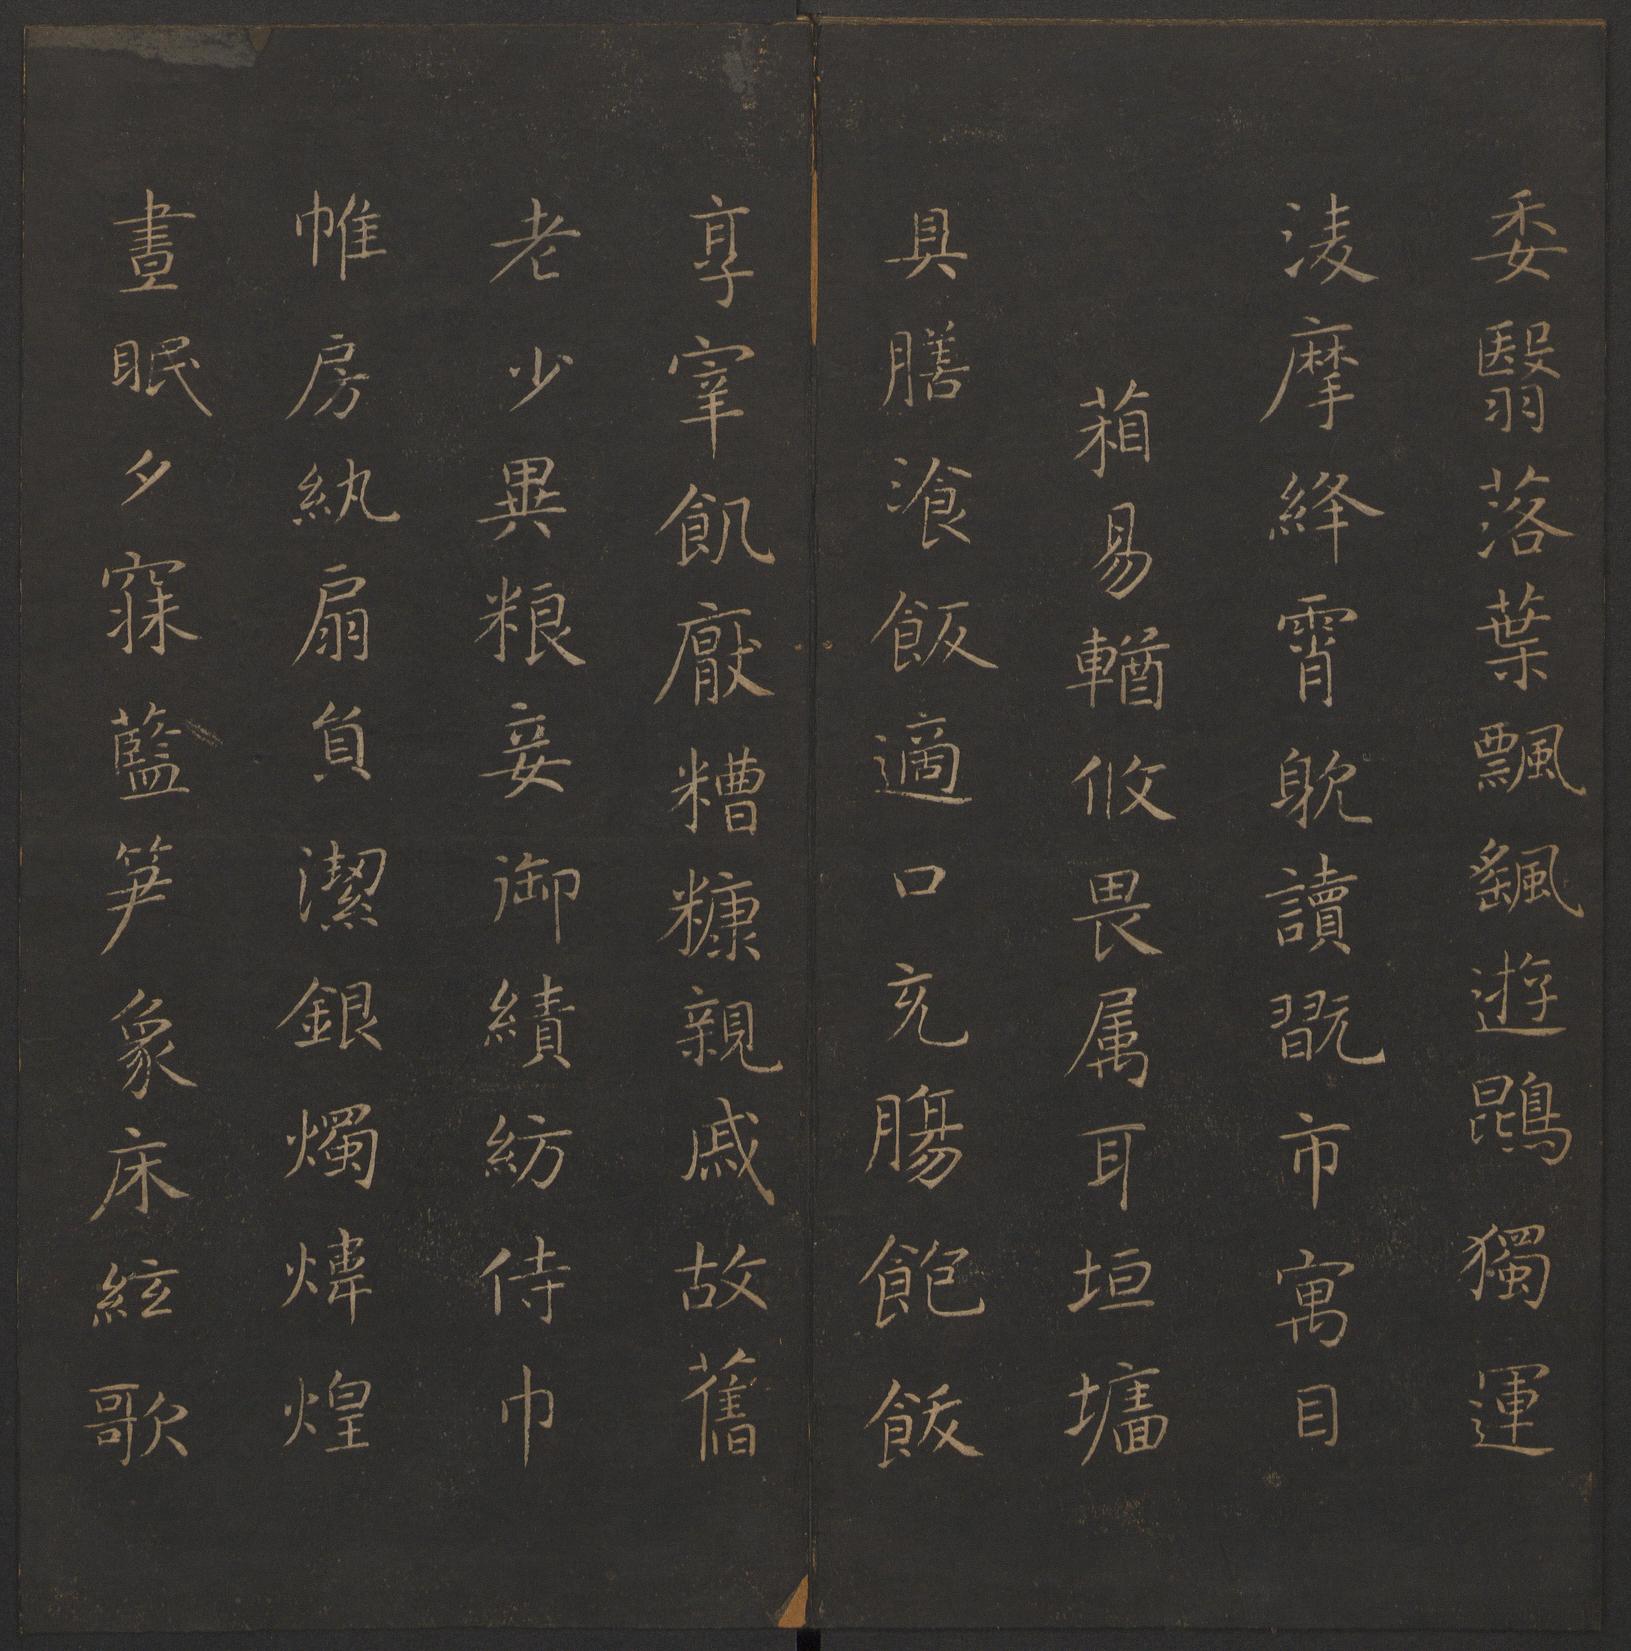 委翳落葉飄颻遊鵾獨運
淩摩絳霄躭讀翫市寓目
葙易輶攸畏属耳垣墻
具膳飡飯適口充腸飽飯
享宰飢厭糟糠親戚故舊
老少異粮妾御績紡侍巾
帷房紈扇負潔銀燭煒煌
晝眠夕寐藍笋象床絃歌